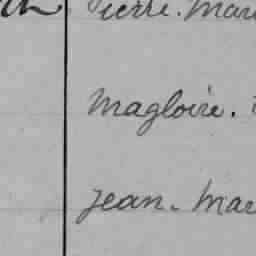 Pierre. Mar
Magloire.
Jean. Mar